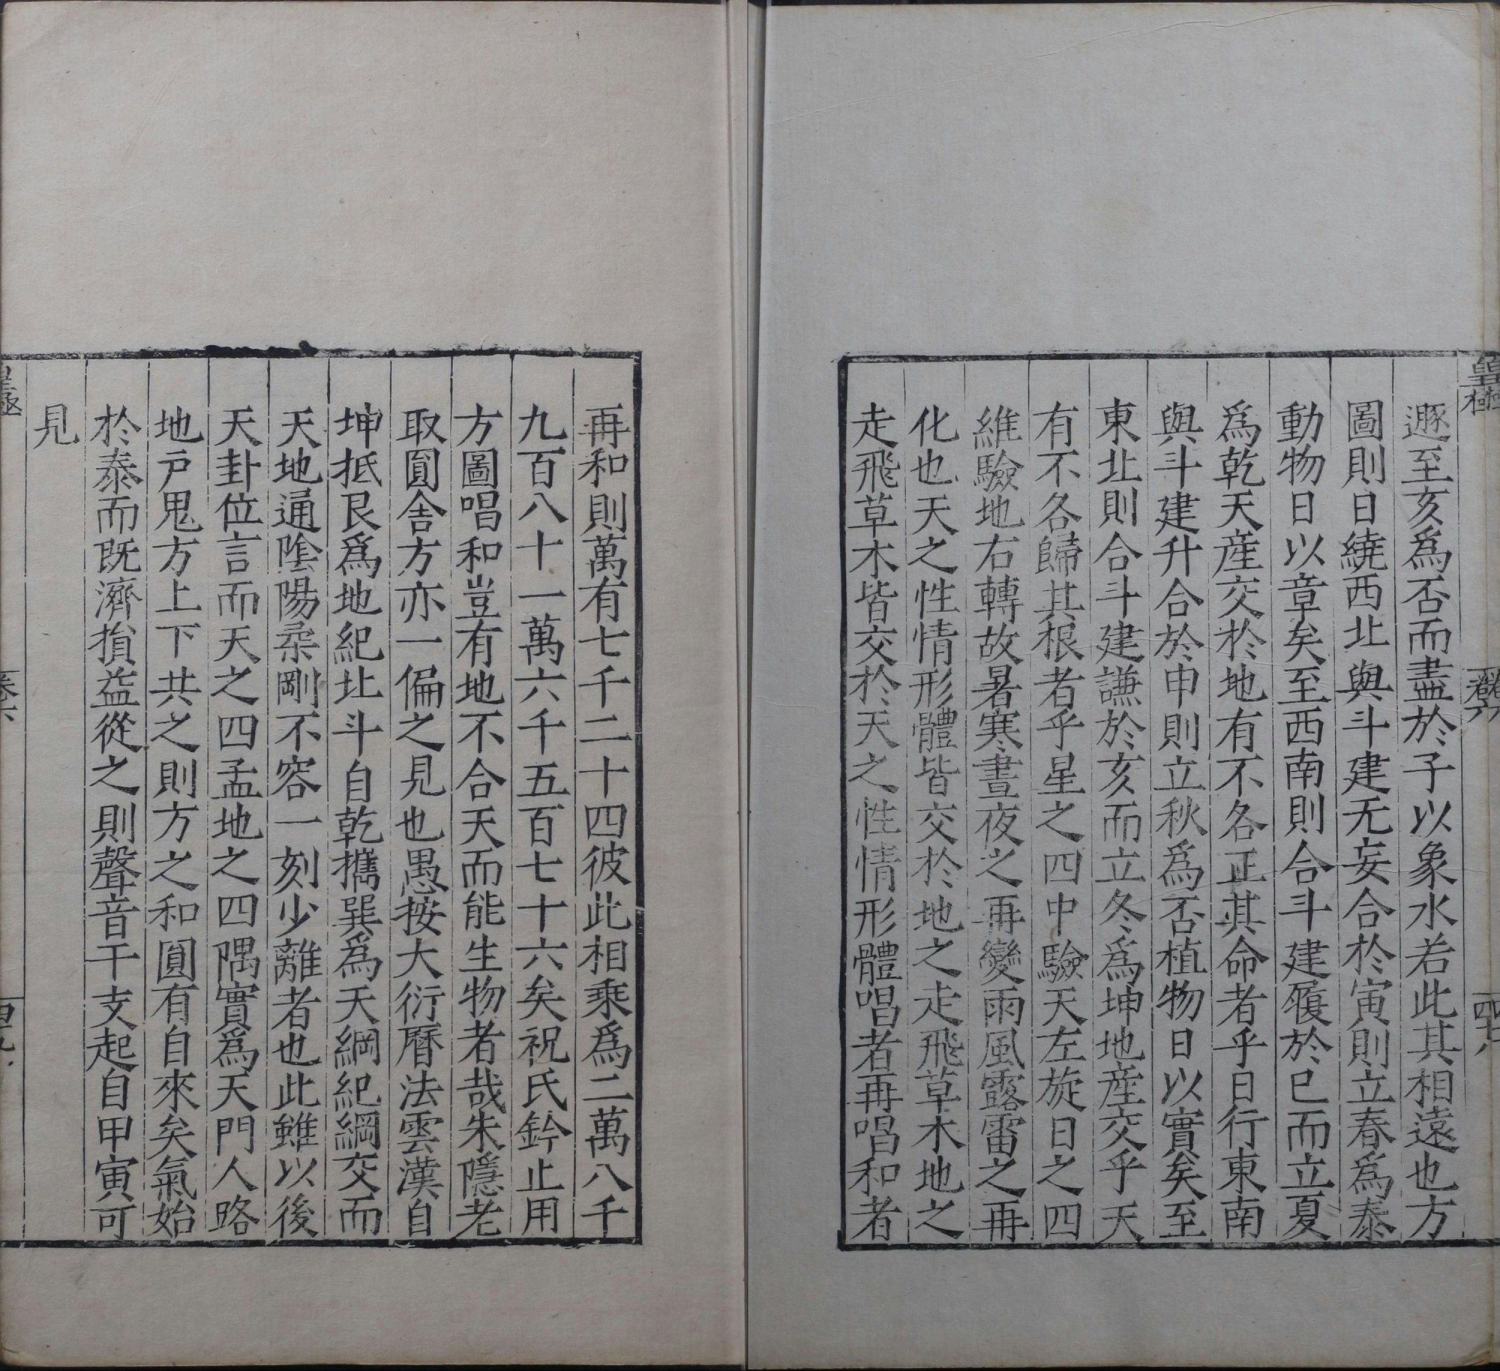 遯至亥爲否而盡於子以象水若此其相遠也方
圖則日繞西北與斗建无妄合於寅則立春爲泰
動物日以章矣至西南則合斗建履於巳而立夏
爲乾天産交於地有不各正其命者乎日行東南
與斗建升合於申則立秋爲否植物日以實矣至
東北則合斗建謙於亥而立冬爲坤地産交乎天
有不各歸其根者乎星之四中驗天左旋日之四
維驗地右轉故暑寒晝夜之再變雨風露雷之再
化也天之性情形體皆交於地之走飛草木地之
走飛草木皆交於天之性情形體唱者再唱和者
再和則萬有七千二十四彼此相乘爲二萬八千
九百八十一萬六千五百七十六矣祝氏鈐止用
方圖唱和豈有地不合天而能生物者哉朱隱老
取圓舍方亦一偏之見也愚按大衍曆法雲漢自
坤抵艮爲地紀北斗自乾攜巽爲天綱紀綱交而
天地通隂陽柔剛不容一刻少離者也此雖以後
天卦位言而天之四孟地之四隅實爲天門人路
地戸鬼方上下共之則方之和圓有自來矣氣始
於泰而既濟損益從之則聲音干支起自甲寅可
見
皇極
卷六